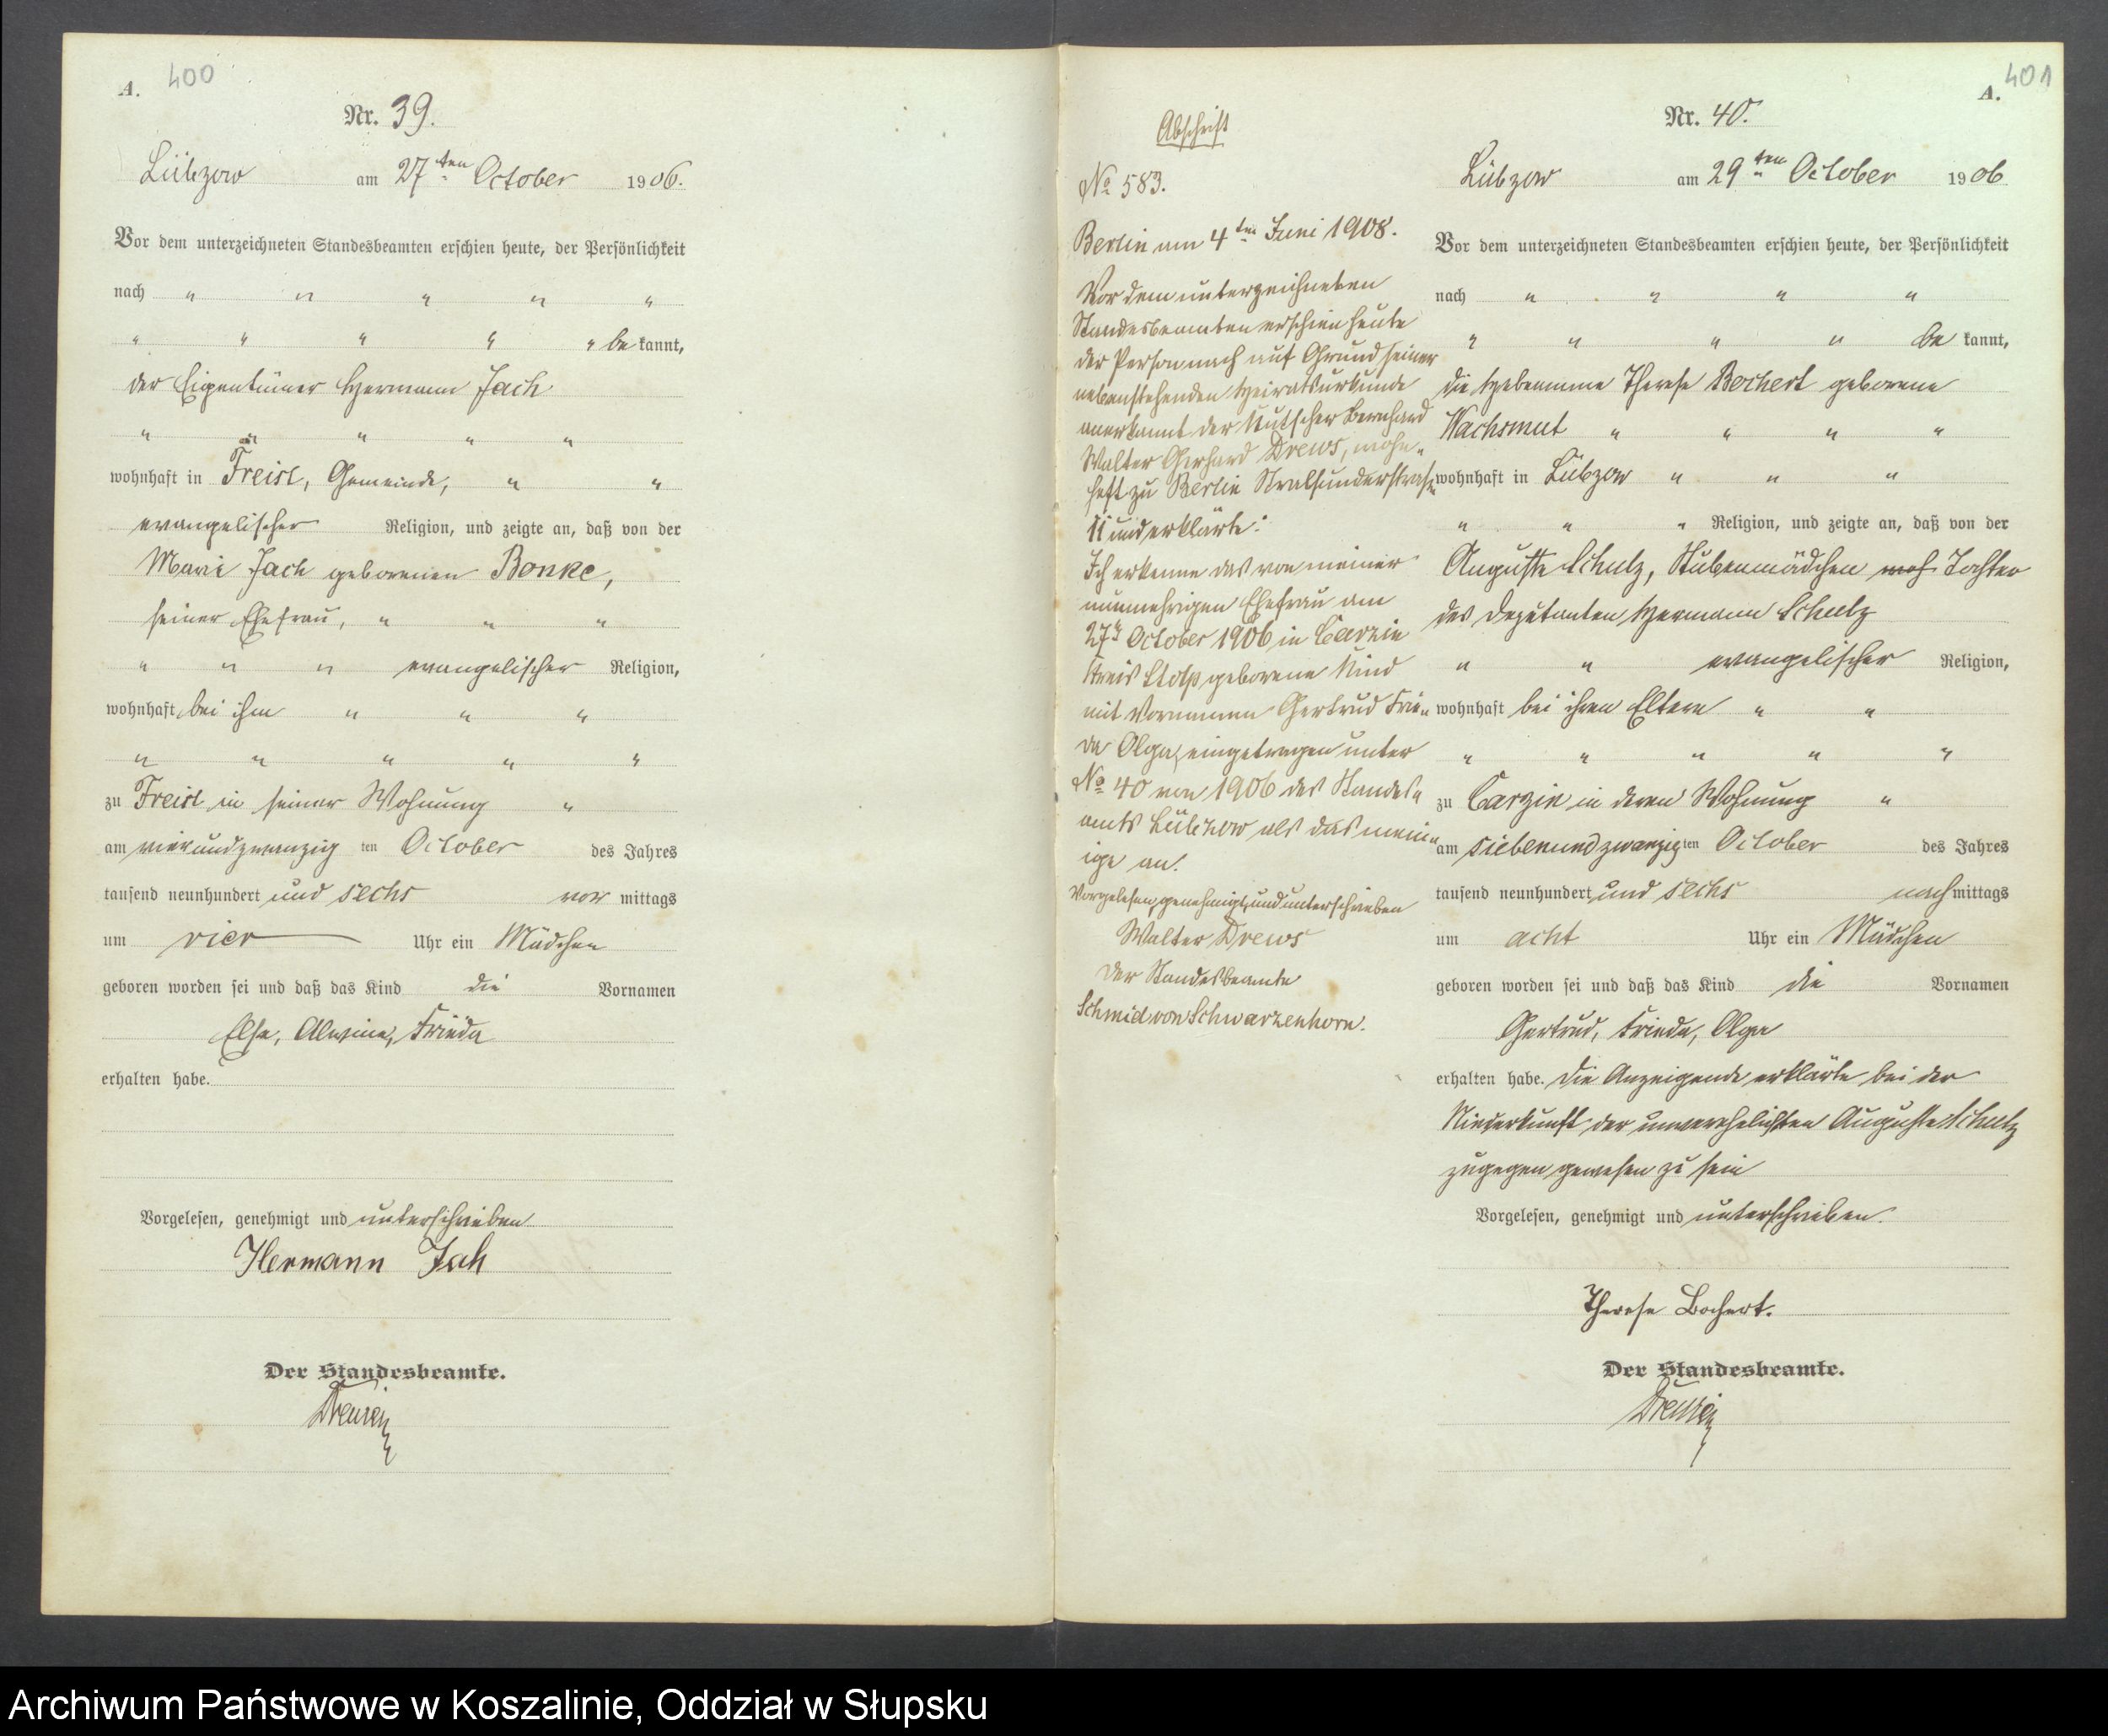 A. 400
Nr. 39.
Lübzow am 27ten October 1906.
Vor dem unterzeichneten Standesbeamten erschien heute, der Persönlichkeit
nach " " " " "
" " " " " be kannt,
der Eigentümer Hermann Jach
" " " " "
wohnhaft in Freist, Gemeinde, " "
evangelischer Religion, und zeigte an, daß von der
Marie Jach geborenen Bonke,
seiner Ehefrau, " " "
" " " evangelischer Religion,
wohnhaft bei ihm " " "
" " " " "
zu Freist in seiner Wohnung "
am vierundzwanzig ten October des Jahres
tausend neunhundert und sechs vor mittags
um vier Uhr ein Mädchen
geboren worden sei und daß das Kind die Vornamen
Else, Alwine, Frieda
erhalten habe.
Vorgelesen, genehmigt und unterschrieben
Hermann Jach
Der Standesbeamte.
Abschrift
No 583.
Berlin am 4ten Juni 1908.
Vor dem unterzeichneten
Standesbeamten erschien heute
der Person nach auf Grund seiner
nebenstehenden Heiratsurkunde
anerkannt der Kutscher Bernhard
Walter Gerhard Drews, wohn-
haft zu Berlin Stralsunderstraße
11 und erklärte:
Ich erkenne das von meiner
nunmehrigen Ehefrau am
27ten October 1906 in Carzin
Kreis Stolp geborene Kind
mit Vornamen Gertrud Frie-
da Olga, eingetragen unter
No 40 von 1906 des Standes-
amts Lübzow als das mein-
ige an.
Vorgelesen, genehmigt und unterschrieben
Walter Drews
Der Standesbeamte
Schmid von Schwarzenhorn.
401
A.
Nr. 40.
Lübzow am 29ten October 1906
Vor dem unterzeichneten Standesbeamten erschien heute, der Persönlichkeit
nach " " " "
" " " " be kannt,
die Hebamme Therese Bochert geborene
Wachsmut " " " "
wohnhaft in Lübzow " " "
" " " Religion, und zeigte an, daß von der
Auguste Schulz, Stubenmädchen Tochter
des Deputanten Hermann Schulz
" " evangelischer Religion,
wohnhaft bei ihren Eltern " "
" " " " "
zu Carzin in deren Wohnung "
am siebenundzwanzig ten October des Jahres
tausend neunhundert und sechs nach mittags
um acht Uhr ein Mädchen
geboren worden sei und daß das Kind die Vornamen
Gertrud, Frieda, Olga
erhalten habe. Die Anzeigende erklärte bei der
Niederkunft der unverehelichten Auguste Schulz
zugegen gewesen zu sein
Vorgelesen, genehmigt und unterschrieben.
Therese Bochert.
Der Standesbeamte.
Archiwum Państwowe w Koszalinie, Oddział w Słupsku